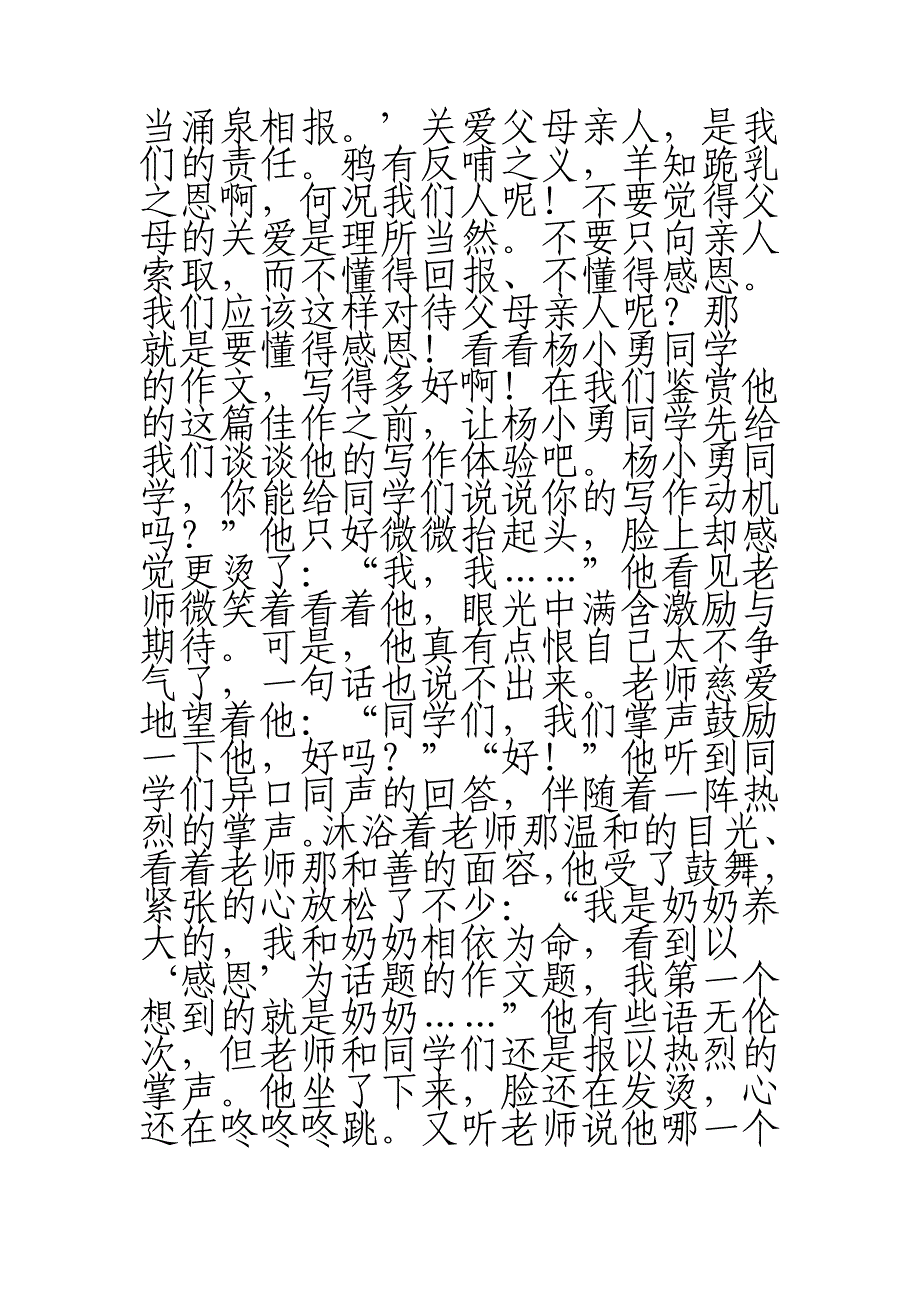 当涌泉相报。’关爱父母亲人，是我
们的责任。鸦有反哺之义，羊知跪乳
之恩啊，何况我们人呢！不要觉得父
母的关爱是理所当然。不要只向亲人
索取，而不懂得回报、不懂得感恩。
我们应该这样对待父母亲人呢？那
就是要懂得感恩！看看杨小勇同学
的作文，写得多好啊！在我们鉴赏他
的这篇佳作之前，让杨小勇同学先给
我们谈谈他的写作体验吧。杨小勇同
学，你能给同学们说说你的写作动机
吗？”他只好微微抬起头，脸上却感
觉更烫了：“我，我……”他看见老
师微笑着看着他，眼光中满含激励与
期待。可是，他真有点恨自己太不争
气了，一句话也说不出来。老师慈爱
地望着他：“同学们，我们掌声鼓励
一下他，好吗？”“好！”他听到同
学们异口同声的回答，伴随着一阵热
烈的掌声。沐浴着老师那温和的目光、
看着老师那和善的面容，他受了鼓舞，
紧张的心放松了不少：“我是奶奶养
大的，我和奶奶相依为命，看到以
‘感恩’为话题的作文题，我第一个
想到的就是奶奶……”他有些语无伦
次，但老师和同学们还是报以热烈的
掌声。他坐了下来，脸还在发烫，心
还在咚咚咚跳。又听老师说他哪一个